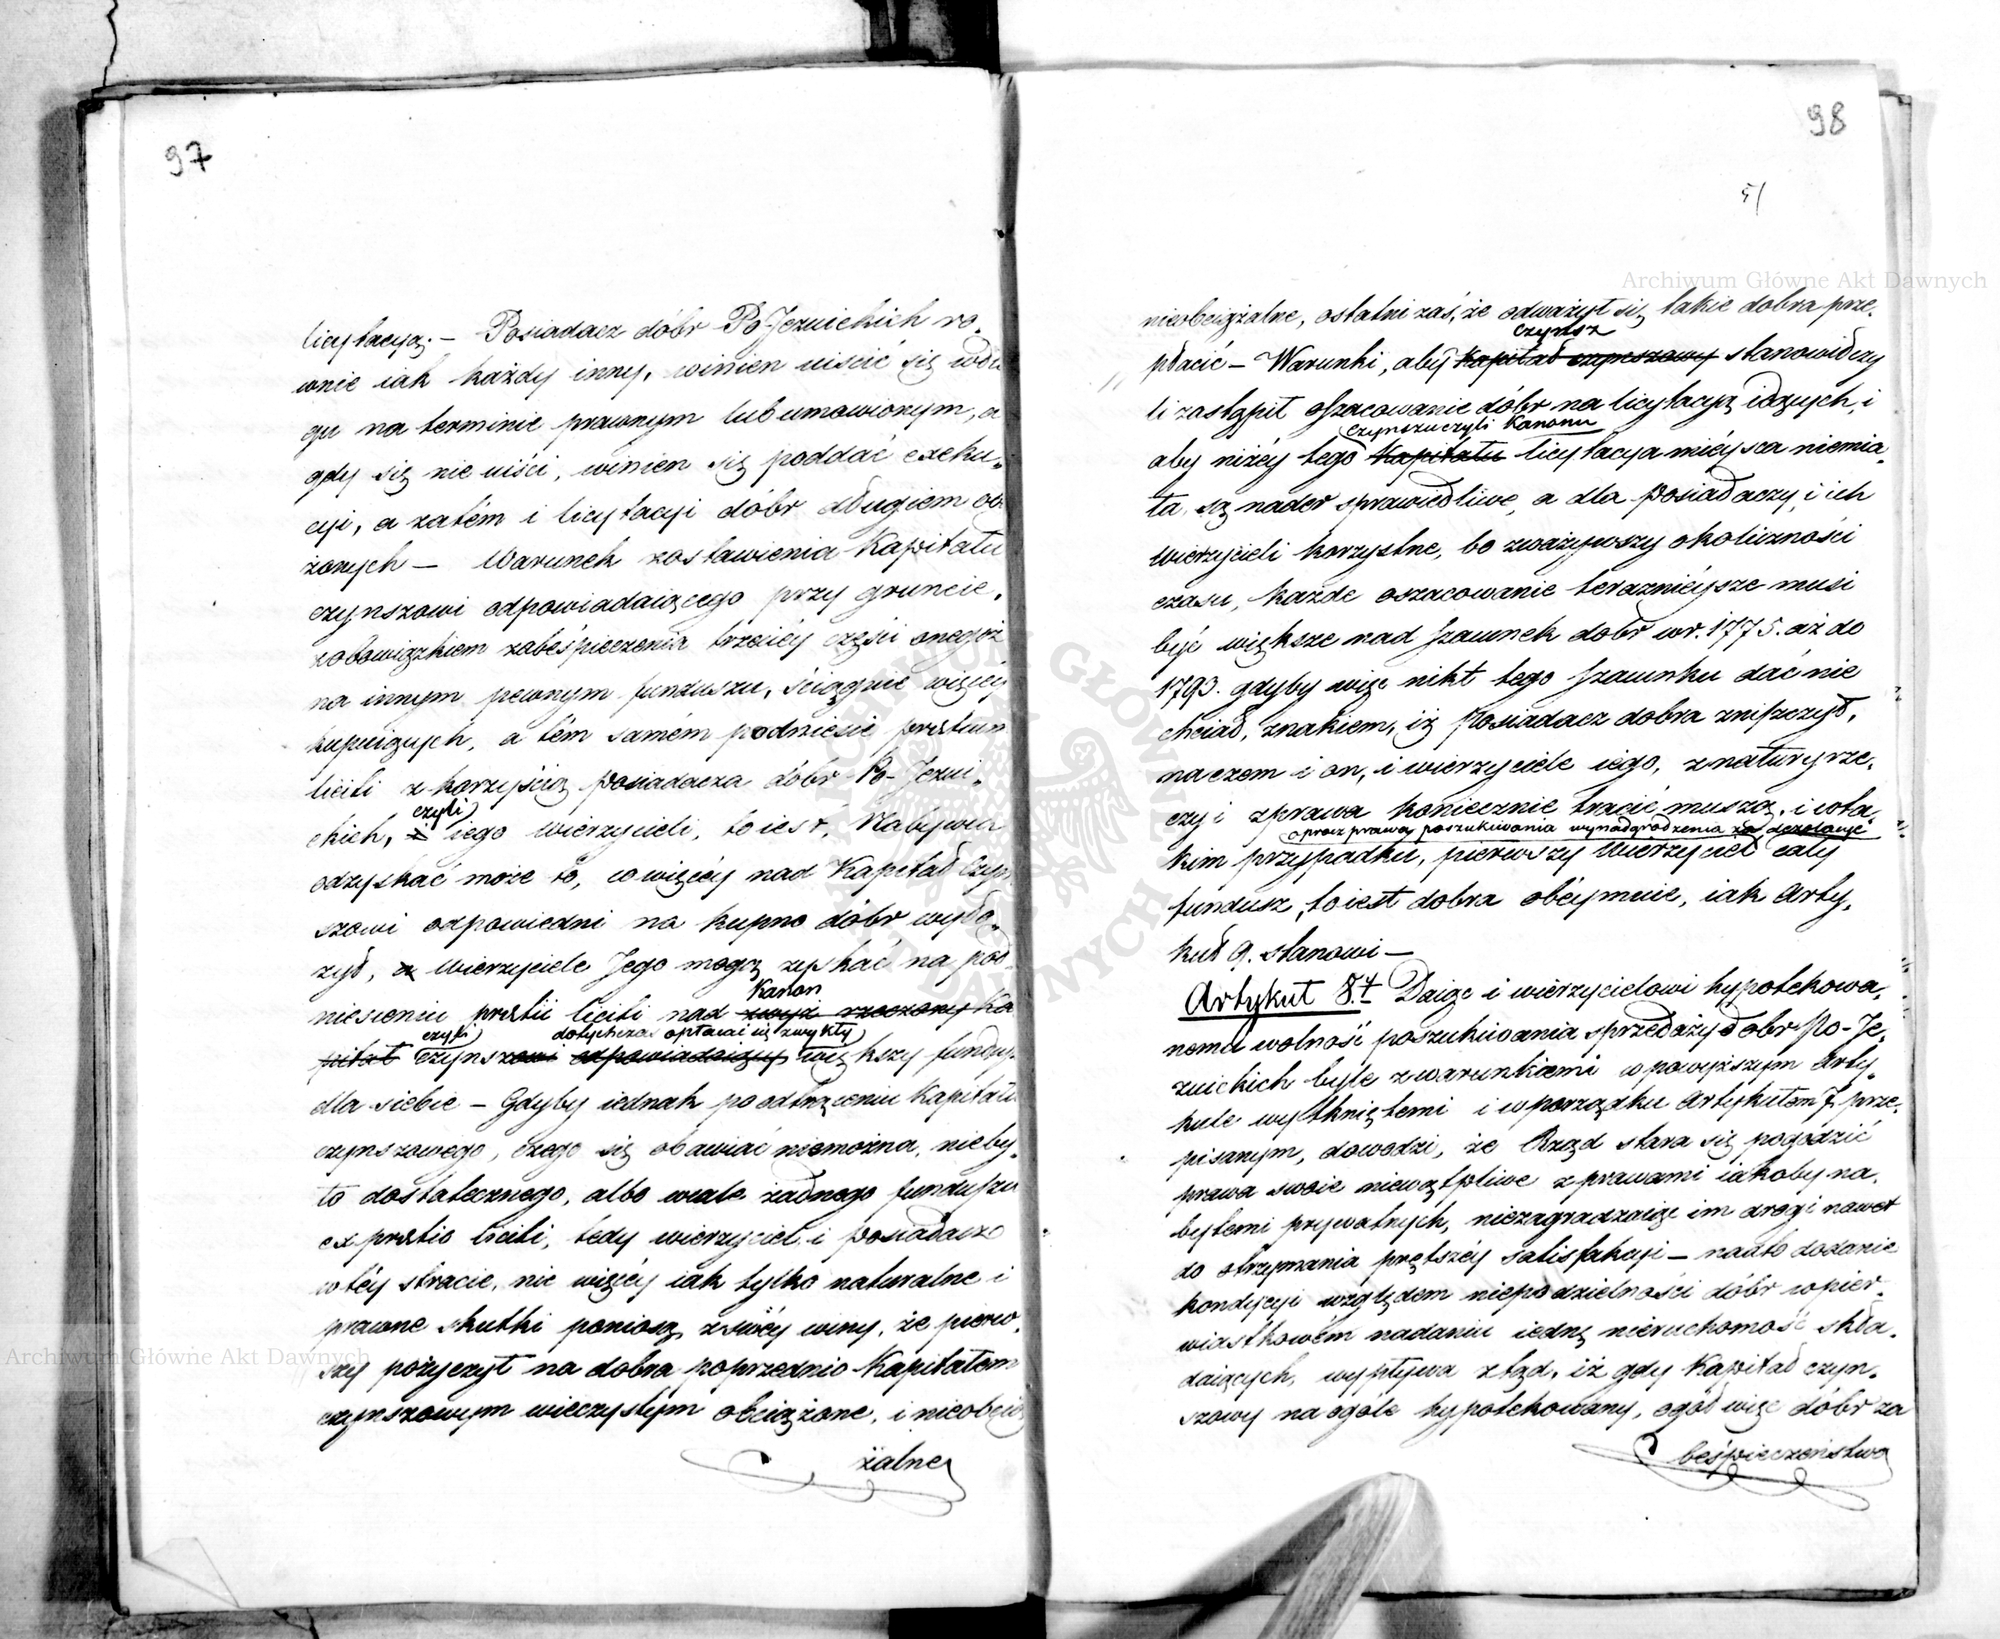 97
licytacyą. — Posiadacz dóbr Po-Jezuickich ro-
wnie iak każdy inny, winien uiścić się w dłu
gu na terminie prawnym lub umowionym, a
gdy się nie uiści, winien się poddać exeku-
cyi, a zatém i licytacyi dóbr długiem ob
żonych — Warunek zostawienia Kapitału
czynszowi odpowiadaiącego przy gruncie,
z obowiązkiem zabeśpieczenia trzeciéy części onegoż
na innym pewnym funduszu, ściągnie więcéy
kupuiących, a tém samém podniesie pretium
liciti z korzyścią posiadacza dóbr Po-Jezui-
czyli
ckich, i iego wierzycieli, to iest, Nabywca
odzyskać może to, co więcéy nad Kapitał Czyn
szowi odpowiedni na kupno dóbr wyło-
żył, a Wierzyciele Jego mogą zyskać na pod-
Kanon
niesieniu pretii liciti nad zwyż rzeczony Ka
czyli dotychczas opłacać się zwykły
pitał czynszowi odpowiadaiący większy fundusz
dla siebie — Gdyby iednak po odtrąceniu Kapitału
czynszowego, czego się obawiać niemożna, nieby-
ło dostatecznego, albo wcale żadnego funduszu
ex pretio liciti, tedy wierzyciel i posiadacz
w téy stracie, nic więcéy iak tylko naturalne i
prawne skutki poniosą z swéy winy, że pierw-
szy pożyczył na dobra poprzednio Kapitałem
czynszowym wieczystym obciążone, i nieobcią
żalne
98
51
nieobciążalne, ostatni zaś, że odważył się takie dobra prze-
czynsz
płacić — Warunki, aby Kapitał czynszowy stanowił czy
li zastąpił oszacowanie dóbr na licytacyą idących, i
czynszu czyli Kanonu
aby niżéy tego Kapitału licytacya mieysca niemia-
ła, są nader sprawiedliwe, a dla posiadaczy, i ich
wierzycieli korzystne, bo zważywszy okoliczności
czasu, każde oszacowanie teraznieysze musi
być większe nad szacunek dobr w r. 1775. aż do
1793. gdyby więc nikt tego szacunku dać nie
chciał, znakiem, iż posiadacz dobra zniszczył,
na czem i on, i wierzyciele iego, z natury rze-
czy i z prawa koniecznie tracić muszą, i w ta-
oprocz prawa poszukiwania wynadgrodzenia za dezolacye
kim przypadku, pierwszy Wierzyciel cały
fundusz, to iest dobra obéymuie, iak Arty-
kuł 9. stanowi —
Artykuł 8.y Daiąc i wierzycielowi hypotekowa-
nemu wolność poszukiwania sprzedaży dobr Po-Je-
zuickich byle z warunkiemi w powyższym Arty-
kule wytkniętemi i w porządku Artykułem 7. prze-
pisanym, dowodzi, że Rząd stara się pogodzić
prawa swoie niewątpliwe z prawami iakoby na-
bytemi prywatnych, niezagradzaiąc im drogi nawet
do otrzymania prętszéy satisfakcyi — nadto dodanie
kondycyi względem niepodzielności dóbr w pier-
wiastkowém nadaniu iednę nieruchomość skła-
daiących, wypływa ztąd, iż gdy Kapitał czyn-
szowy na ogóle hypotekowany, ogół więc dóbr za
beśpieczeństwo
Archiwum Główne Akt Dawnych
Archiwum Główne Akt Dawnych